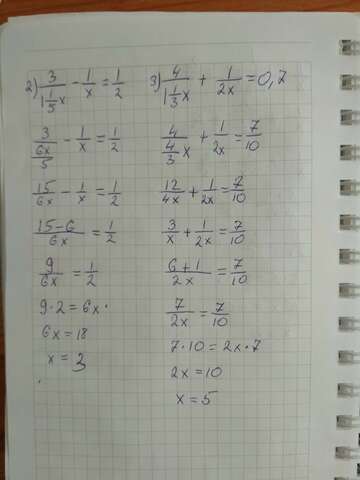 2) 3/(1 1/5 x) - 1/x = 1/2
3/(6x/5) - 1/x = 1/2
15/6x - 1/x = 1/2
(15-6)/6x = 1/2
9/6x = 1/2
9·2=6x·
6x=18
x=3
3) 4/(1 1/3 x) + 1/2x = 0,7
4/(4/3 x) + 1/2x = 7/10
12/4x + 1/2x = 7/10
3/x + 1/2x = 7/10
(6+1)/2x = 7/10
7/2x = 7/10
7·10=2x·7
2x=10
x=5